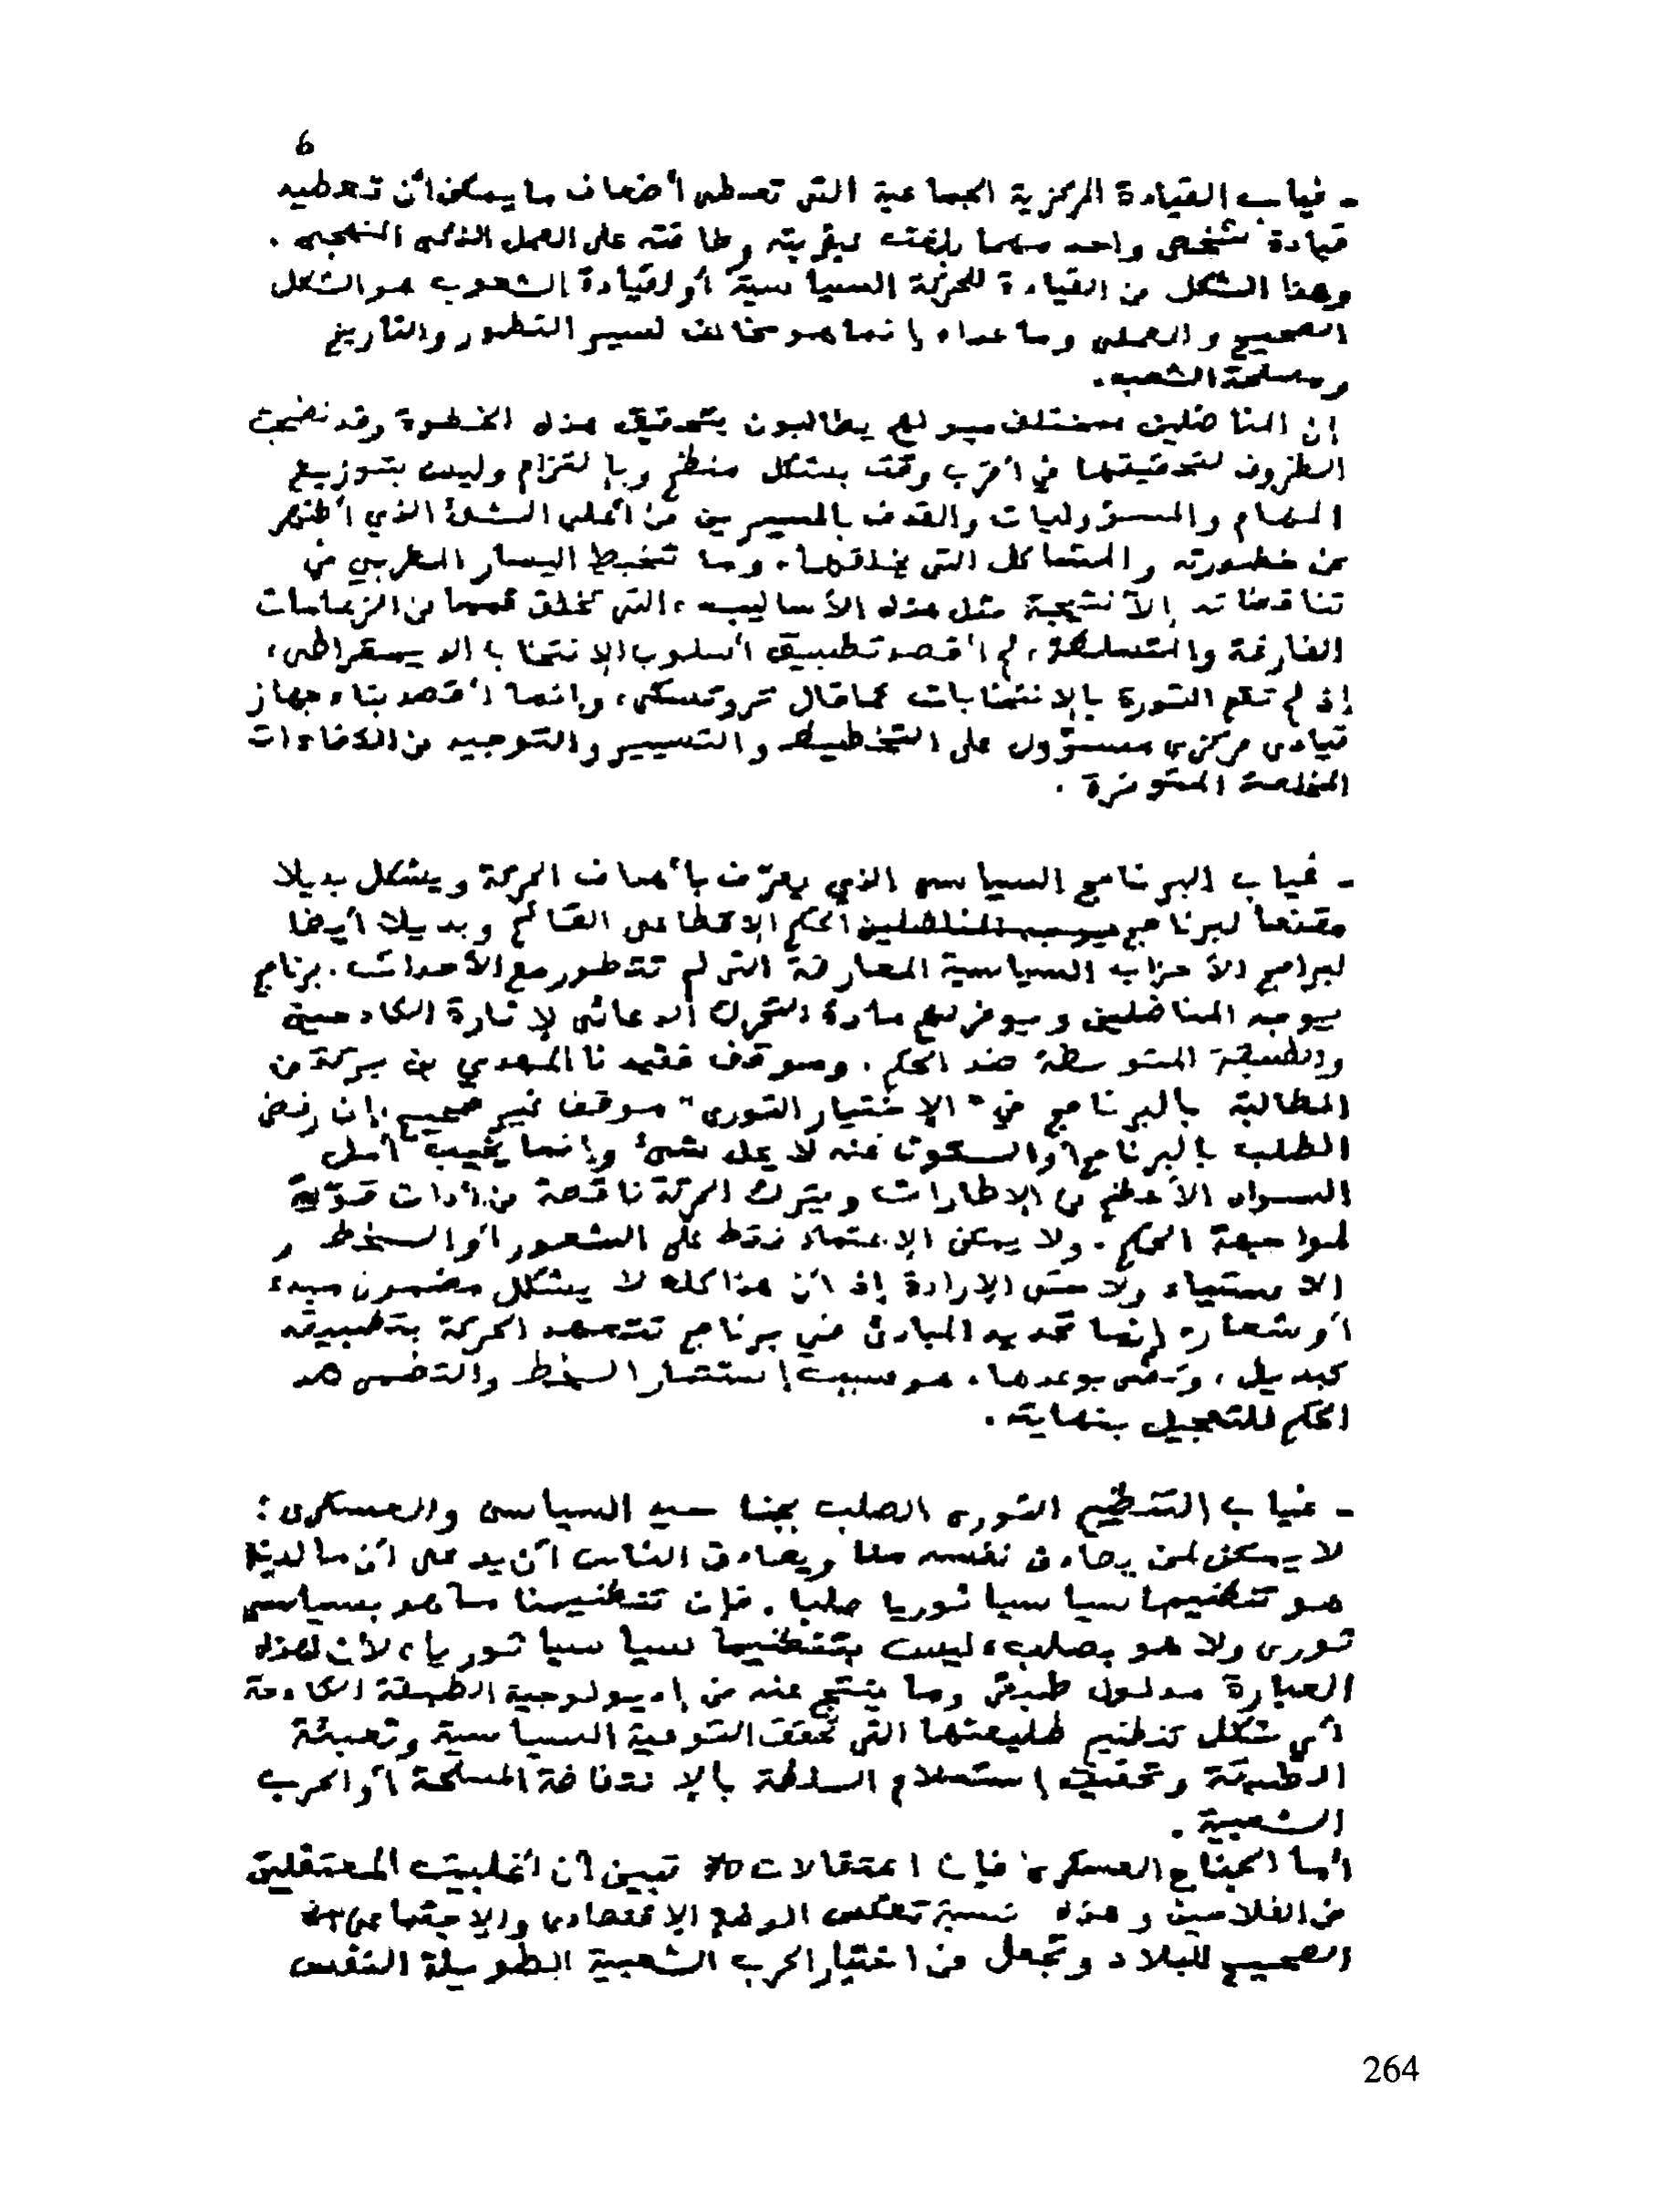 6
- غياب القيادة المركزية الجماعية التي تعطي أضعاف ما يمكن أن تعطيه
قيادة شخص واحد مهما بلغت عبقريته وطاقته على العمل الذكي
وهذا الشكل من القيادة للحركة السياسية أو لقيادة الشعوب هو الشكل
الصحيح والعملي وما عداه إنما هو مخالف لسير التطور والتاريخ
ومصلحة الشعب.
إن المناضلين بمختلف ميولهم يطالبون بتحقيق هذه الخطوة وقد نضجت
الظروف لتحقيقها في أقرب وقت بشكل منظم وبإلتزام وليس بتوزيع
المهام والمسؤوليات والقذف بالمسيرين من أعلى الشئ الذي أظهر
عن خطورته والمشاكل التي يخلقها. وما تخبط اليسار المغربي في
تناقضاته إلاّ نتيجة مثل هذه الأساليب، التي تخلق من الزعامات
الفارغة والمتسلطة، لم أقصد تطبيق أسلوب الإنتخاب الديمقراطي،
إذ لم تقم الثورة بالإنتخابات كما قال تروتسكي، وإنما أقصد بناء جهاز
قيادي مركزي مسؤول على التخطيط والتسيير والتوجيه من الكفاءات
المخلصة المتوفرة.
- غياب البرنامج السياسي الذي يعرّف بأهداف الحركة ويشكل بديلا
مقنعا لبرنامج الحكم الإقطاعي القائم وبديلا أيضا
لبرامج الأحزاب السياسية المعارضة التي لم تتطور مع الأحداث. برنامج
يوجه المناضلين ويوفر لهم مادة التحرك الدعائي لإثارة الكادحين
والطبقة المتوسطة ضد الحكم. وموقف فقيدنا المهدي بن بركة من
المطالبة بالبرنامج في "الإختيار الثوري" موقف غير صحيح. إن رفض
الطلب بالبرنامج أو السكوت عنه لا يحل شئ وإنما يخيب أمل
السواد الأعظم من الإطارات ويترك الحركة ناقصة من أدات قوّية
لمواجهة الحكم. ولا يمكن الإعتماد فقط على الشعور أو السخط و
الاستياء ولا حتى الإرادة إذ أن هذا كله لا يشكل مضمون مبدء
أو شعار، إنما تحديد المبادئ في برنامج تتعهد الحركة بتطبيقه
كبديل، وتفي بوعدها، هو سبب إستثمار السخط والتضمر ضد
الحكم للتعجيل بنهايته.
- غياب التنظيم الثوري الصلب بجناحيه السياسي والعسكري:
لا يمكن لمن يصادق نفسه منا ويصادق الناس أن يدعي أن ما لدينا
هو تنظيما سياسيا ثوريا صلبا. فإن تنظيمنا ما هو بسياسي
ثوري ولا هو بصلب، ليست بتنظيما سياسيا ثوريا، لأن لهذه
العبارة مدلول طبقي وما ينتج عنه من إديولوجية الطبقة الكادحة
أي شكل تنظيم طليعتها التي تحقق التوعية السياسية وتعبئة
الطبقة وتحقيق إستلام السلطة بالإنتفاضة المسلحة أو الحرب
الشعبية.
أما الجناح العسكري فإن اعتقالات 70 تبين أن أغلبيت المعتقلين
من الفلاحين وهذه نسبة تعكس الوضع الإقتصادي والإجتماعي
الصحيح للبلاد وتجعل من اختيار الحرب الشعبية الطويلة النفس
264